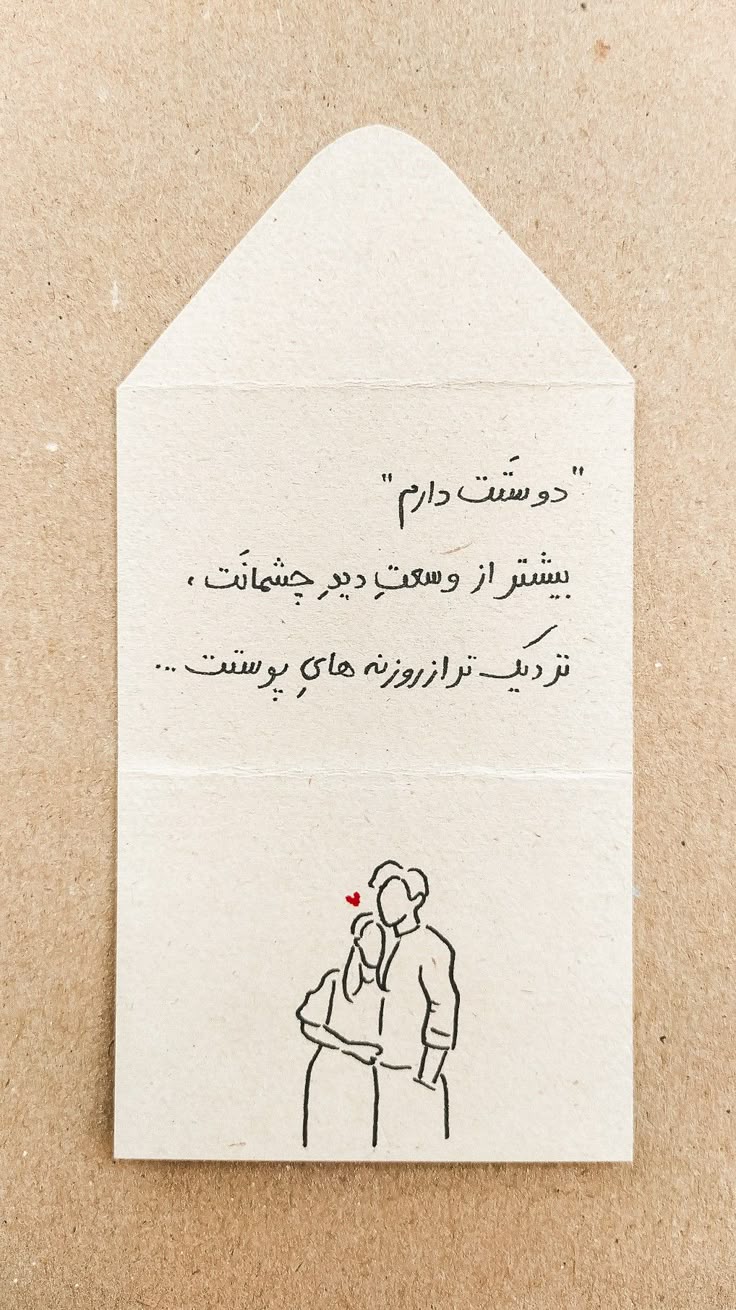 "دوستَت دارم"
بیشتر از وسعتِ دیدِ چشمانَت ،
نزدیک تر از روزنه هایِ پوستت ...